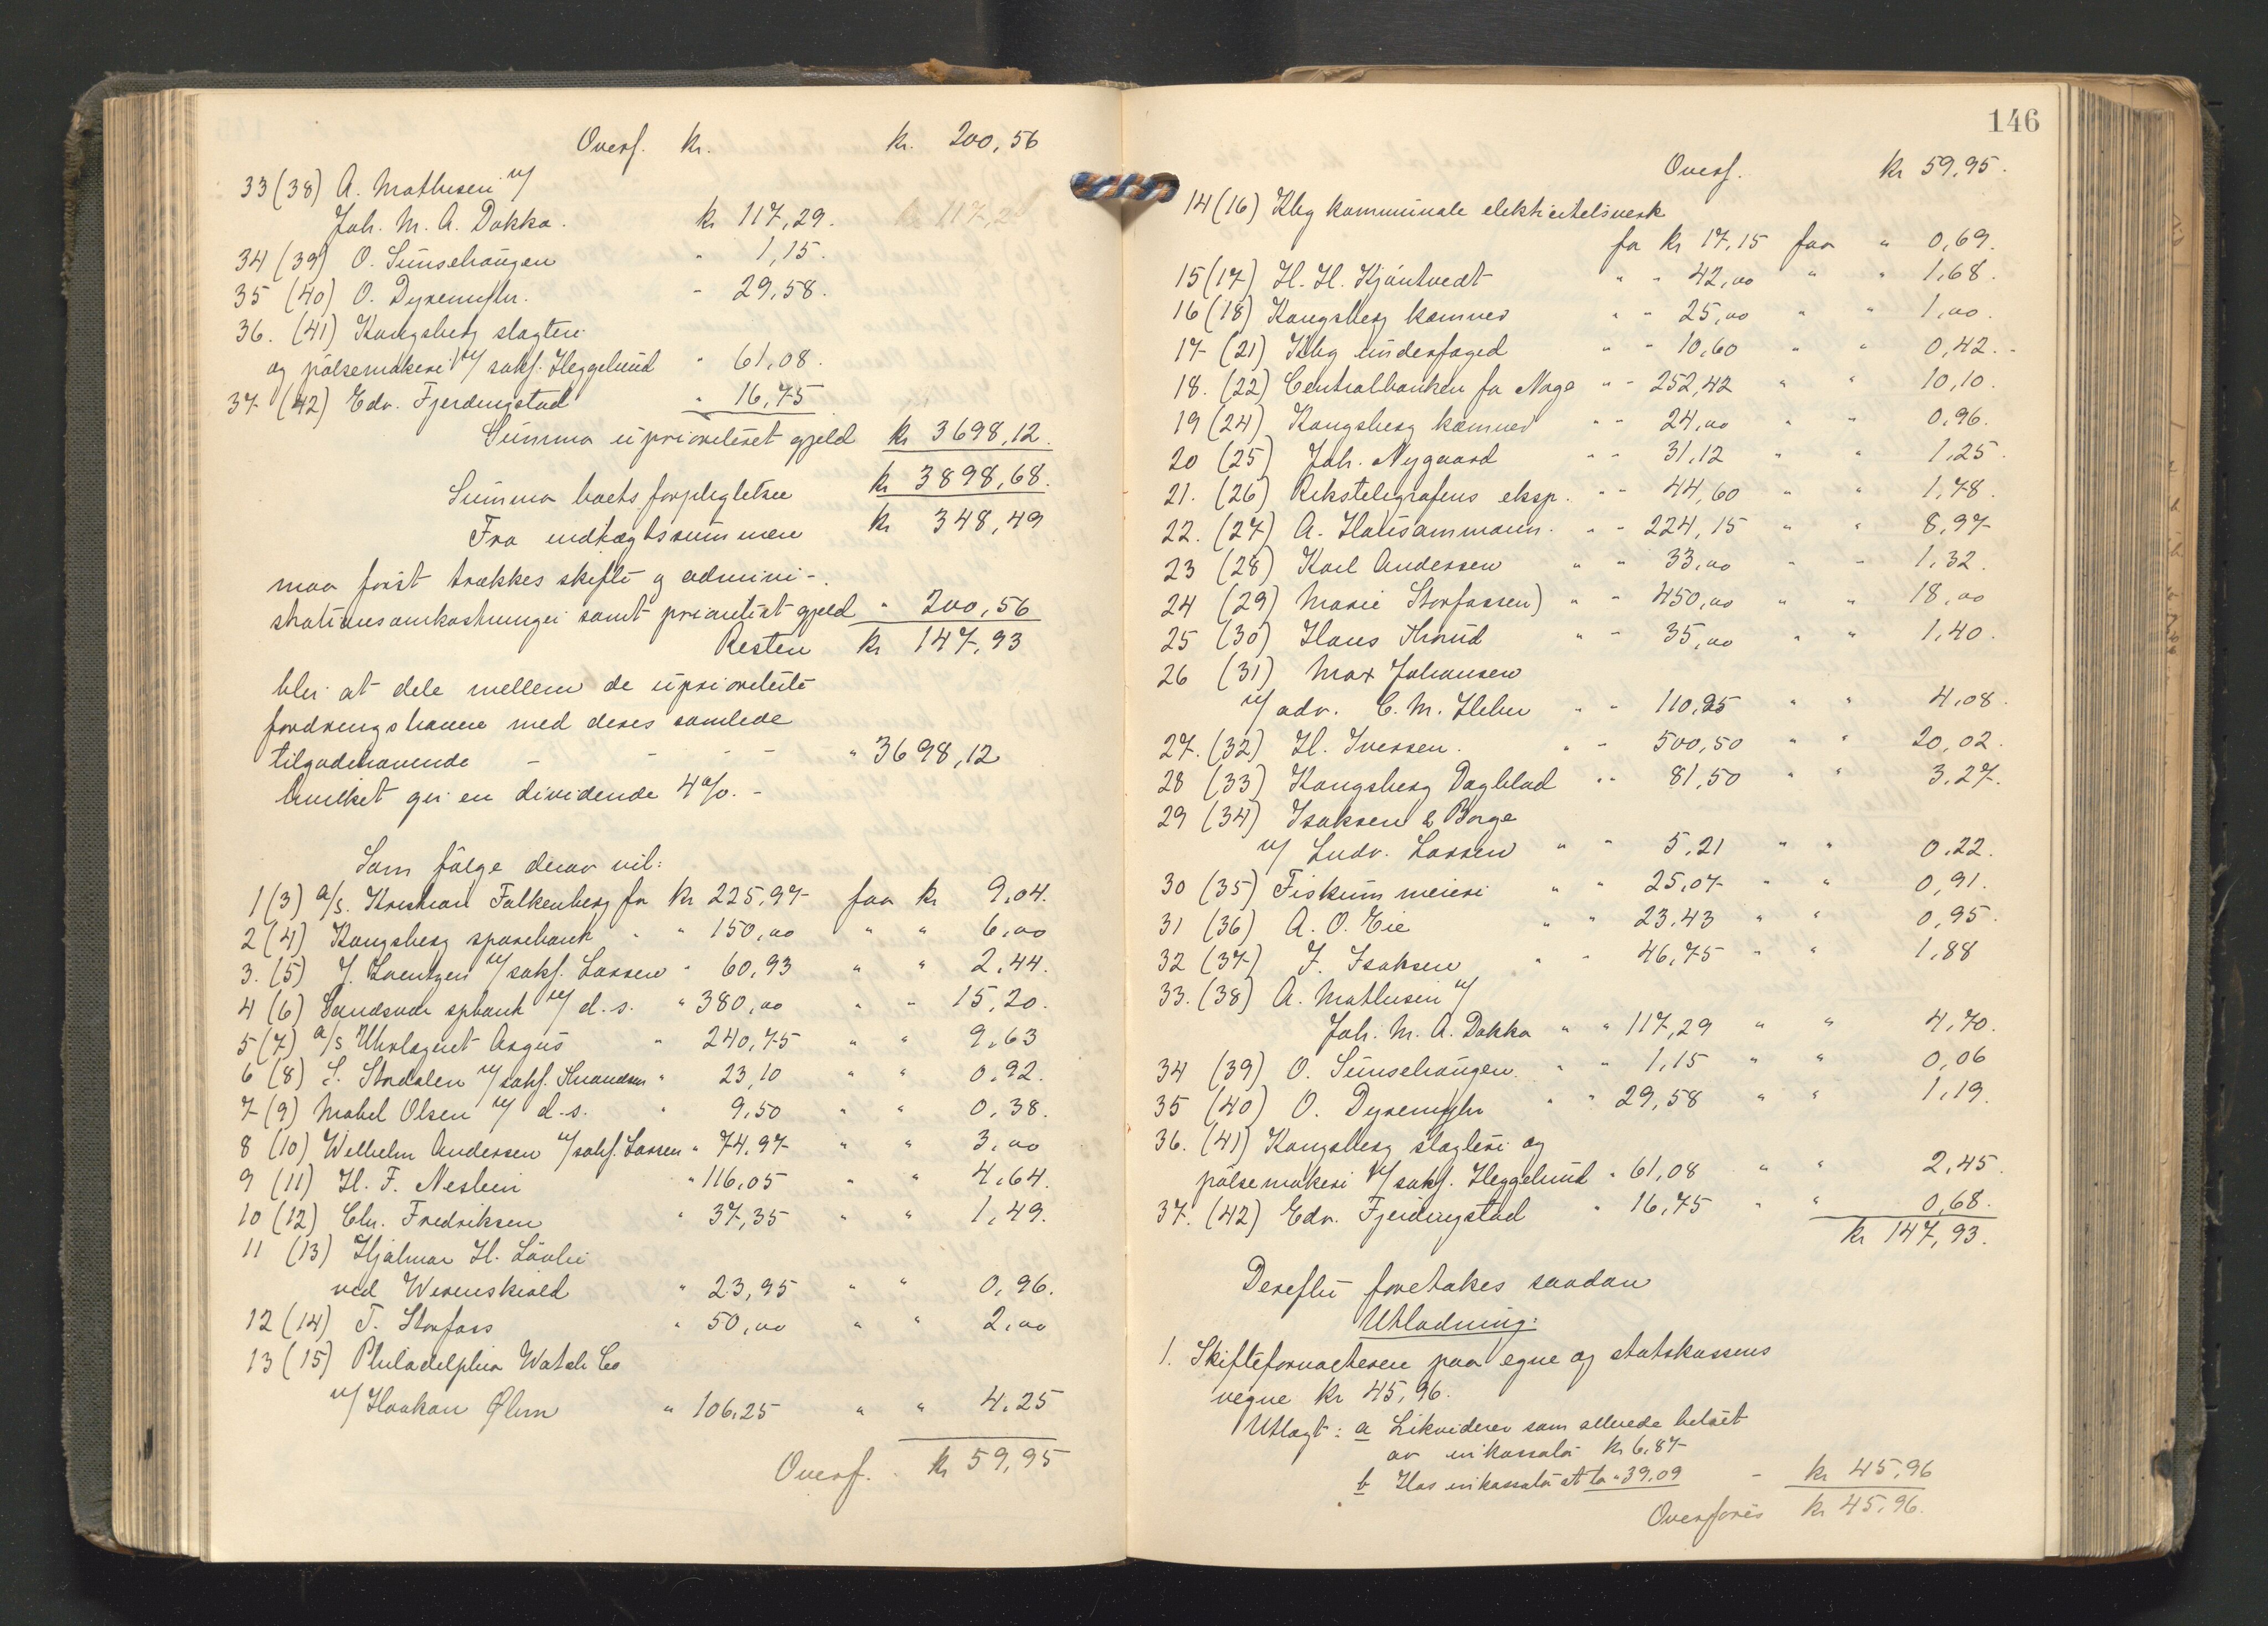 Overf. kr. kr. 200,56
33 (38) A. Mathisen v/
Joh. M. A. Dokka. kr 117,29.
34 (39) O. Sunsehaugen " 1,15.
35 (40) O. Dyremyhr. - 29,58.
36. (41) Kongsberg slagteri
og pølsemakeri v/ sakf. Heggelund " 61,08.
37 (42) Edv. Fjerdingstad " 16,75
Summa uprioritert gjeld kr 3698,12.
Summa boets forpligtelser kr 3898,68.
Fra indtægtssummen kr 348,49
maa først trækkes skifte og admini-
strationsomkostninger samt prioritert gjeld " 200,56
Resten kr 147,93
blir at dele mellem de uprioriterte
fordringshavere med deres samlede
tilgodehavende - - - - " 3698,12
hvilket gir en dividende 4%. -
Som følge derav vil:
1 (3) a/s. Kristian Falkenberg for kr 225,97 faar kr 9,04.
2 (4) Kongsberg sparebank " " 150,00 " " 6,00
3. (5) J. Lorentzen v/ sakf. Larsen " 60,93 " " 2,44.
4 (6) Sandsvær spbank v/ d.s. " 380,00 " " 15,20.
5 (7) a/s Uhrlageret Argus " 240,75 " " 9,63
6 (8) S. Stordalen v/ sakf. Knudsen " 23,10 " " 0,92.
7 (9) Mabel Olsen v/ d.s. " 9,50 " " 0,38.
8 (10) Wilhelm Andersen v/ sakf. Larsen " 74,97 " " 3,00
9 (11) H. F. Neslein " 116,05 " " 4,64.
10 (12) Chr. Fredriksen " 37,35 " " 1,49.
11 (13) Hjalmar H. Løvlie
ved Werenskiold " 23,95 " " 0,96.
12 (14) T. Storfors " 50,00 " " 2,00
13 (15) Philadelphia Watch Co
v/ Haakon Ølim " 106,25 " " 4,25
Overf. kr 59,95
146
Overf. kr 59,95.
14 (16) Kbg kommunale elektricitetsverk
for kr 17,15 faar " 0,69.
15 (17) H. H. Kjøntvedt " " 42,00 " " 1,68.
16 (18) Kongsberg kæmner " " 25,00 " " 1,00.
17 (21) Kbg underfoged " " 10,60 " " 0,42. -
18. (22) Centralbanken for Norge " " 252,42 " " 10,10.
19 (24) Kongsberg kæmner " " 24,00 " " 0,96.
20 (25) Joh. Nygaard " " 31,12 " " 1,25.
21. (26) Rikstelegrafens eksp. " " 44,60 " " 1,78.
22. (27) A. Hausammann. " " 224,15 " " 8,97
23 (28) Karl Andersen " " 33,00 " " 1,32.
24 (29) Marie Storfossen) " " 450,00 " " 18,00
25 (30) Hans Thrud " " 35,00 " " 1,40.
26 (31) Max Johansen
v/ adv. C. M. Heber " " 110,25 " " 4,08.
27. (32) H. Iversen. " " 500,50 " " 20,02.
28 (33) Kongsberg Dagblad " " 81,50 " " 3,27.
29 (34) Isaksen & Borge
v/ Ludv. Larsen " " 5,21 " " 0,22.
30 (35) Fiskum meieri " " 25,07 " " 0,91.
31 (36) A. O. Eie " " 23,43 " " 0,95.
32 (37) J. Isaksen " " 46,75 " " 1,88
33. (38) A. Mathisen v/
Joh. M. A. Dokka " " 117,29 " " 4,70.
34 (39) O. Sunsehaugen. " " 1,15 " " 0,06
35 (40) O. Dyremyhr " " 29,58 " " 1,19.
36. (41) Kongsberg slagteri og
pølsemakeri v/ sakf. Heggelund " 61,08 " " 2,45.
37. (42) Edv. Fjerdingstad " 16,75 " " 0,68.
kr 147,93.
Derefter foretakes saadan
Utlodning:
1. Skifteforvalteren paa egne og statskassens
vegne kr 45,96.
Utlagt: a Likviderer som allerede betalt
av inkassator kr 6,87
b Hos inkassator at ta " 39,09 - kr 45,96
Overføres kr 45,96.